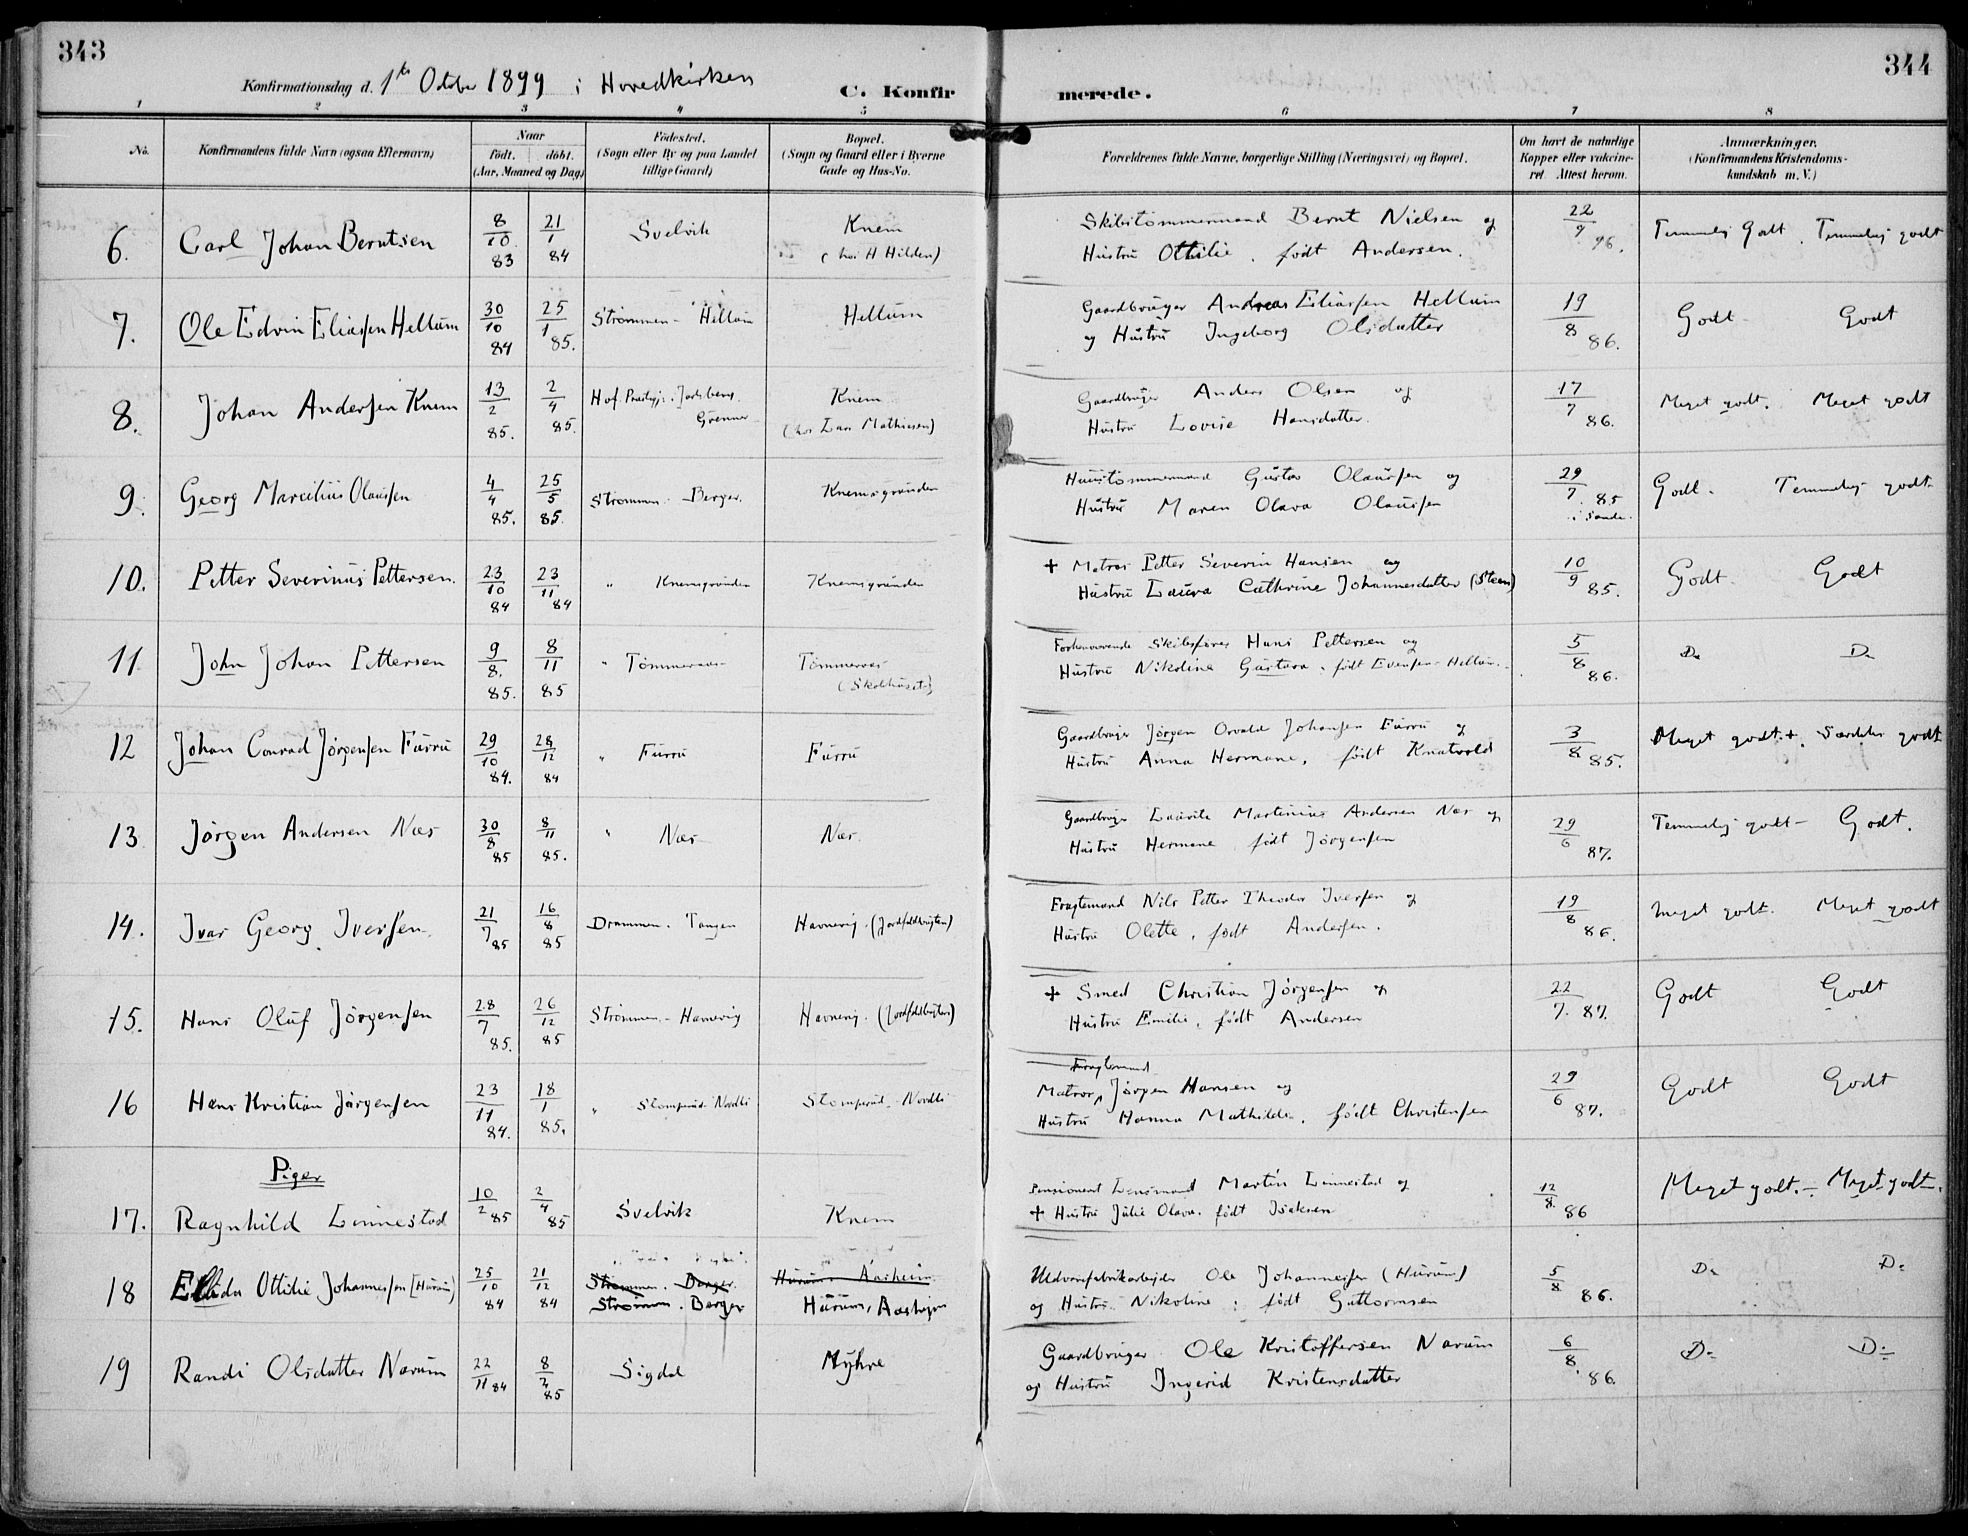 343
344
Konfirmationsdag d. 1ste October 1899 i Hovedkirken
C. Konfirmerede.
1 2 3 4 5 6 7 8
No.
Konfirmandens fulde Navn (ogsaa Efternavn)
Naar
födt. döbt.
(Aar, Maaned og Dag)
Födested.
(Sogn eller By og paa Landet
tillige Gaard)
Bopæl.
(Sogn og Gaard eller i Byerne
Gade og Hus-No.
Forældrenes fulde Navne, borgerlige Stilling (Næringsvei) og Bopæl.
Om havt de naturlige
Kopper eller vakcine-
ret Attest herom.
Anmærkninger.
(Konfirmandens Kristendoms-
kundskab m. V.)
6. Carl Johan Berntsen 8/10 83 21/1 84 Svelvik Knem
(hos H Hilden)
Skibstømmermand Bernt Nielsen og
Hustru Ottilie, født Andersen.
22/9 96. Temmelig Godt. Temmelig godt
7. Ole Edvin Eliassen Hellum 30/10 84 25/1 85. Strømmen - Hellum Hellum
Gaardbruger Andreas Eliassen Hellum
og Hustru Ingeborg Olsdatter
19/8 86. Godt Godt
8. Johan Andersen Knem 13/2 85. 2/4 85. Hof Præstgj. Jarlsberg.
Grenner
Knem
(hos Lars Mathisen)
Gaardbruger Anders Olsen og
Hustru Lovise Hansdatter.
17/7 86. Meget godt. Meget godt
9. Georg Marcilius Olaussen 4/4 85. 25/5 85. Strømmen - Berger. Knemsgrunden
Huustømmermand Gustav Olaussen og
Hustru Maren Olava Olaussen
29/7 85
i Sande.
Godt. Temmelig godt
10. Petter Severinus Pettersen. 23/10 84 23/11 84 " Knemsgrunden Knemsgrunden
+ Matros Petter Severin Hansen og
Hustru Laura Cathrine Johannesdatter (Steen)
10/9 85. Godt Godt
11 John Johan Pettersen 9/8. 85. 8/11 85 " Tømmeraas Tømmeraas
(Skolehuset)
Forhenværende Skibsfører Hans Pettersen og
Hustru Nikoline Gustava, født Evensen Hellum.
5/8 86. Do Do
12 Johan Conrad Jørgensen Furru 29/10 84. 28/12 84 " Furru Furru
Gaardbruger Jørgen Osvald Johansen Furru og
Hustru Anna Hermane, født Knatvold
3/8 85. Meget godt +. Særdeles godt
13 Jørgen Andersen Nær 30/8 85 8/11 85. " Nær Nær.
Gaardbruger Laurits Martinius Andersen Nær og
Hustru Hermane født Jørgensen
29/6 87. Temmelig godt - Godt.
14. Ivar Georg Iversen. 21/7 85 16/8 85 Drammen. Tangen Havnevig. (Jordfaldbugten)
Fragtemand Nils Petter Theodor Iversen og
Hustru Olette, født Andersen.
19/8 86. Meget godt. Meget godt
15. Hans Oluf Jørgensen 28/7 85. 26/12 85 Strømmen - Havnevig Havnevig. (Jordfaldbugten)
+ Smed Christian Jörgensen og
Hustru Emilie, født Andersen
22/7. 87. Godt Godt
16 Hans Kristian Jørgensen 23/11 84. 18/1 85. " Stomperud - Nordli Stomperud - Nordli
Fragtemand
Matros, Jørgen Hansen og
Hustru Hanna Mathilde, født Christensen
29/6 87. Godt Godt
Piger
17. Ragnhild Linnestad 10/2 85 2/4 85 Svelvik Knem
Pensioneret Lensmand Martin Linnestad og
+ Hustru Julie Olava. født Isaksen
12/8. 86 Meget godt. - Meget godt.
18 Ellida Ottilie Johannessen [Hurum) 25/10 84 21/12 84 Strømmen. Berger. Hurum. Aasheim
Strømmen. Berger Hurum, Aashagen
Uldvarefabrikarbejder Ole Johannessen (Hurum)
og Hustru Nikoline, født Guttormsen
5/8 86. Do Do
19 Randi Olsdatter Narum 22/11 84 8/2 85 Sigdal Myhre
Gaardbruger Ole Kristoffersen Narum
og Hustru Ingerid Kristensdatter
6/8 86. Do Do